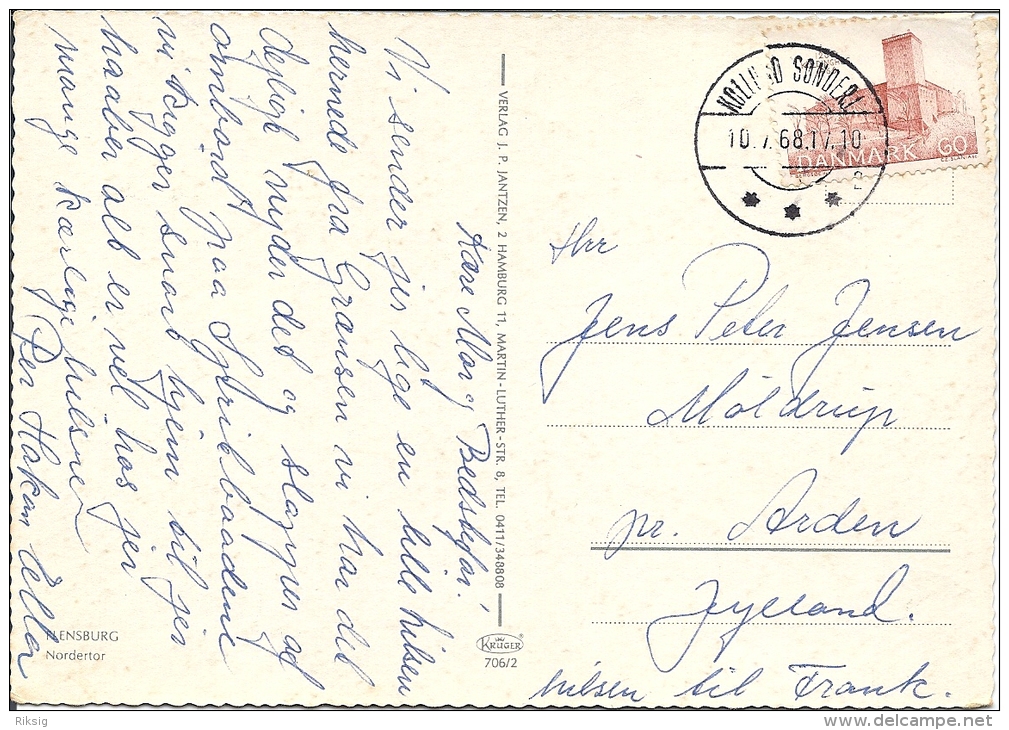 Kære Mor og Bedstefar!
Vi sender jer lige en lille hilsen
hernede fra Grænsen vi har det
dejligt nyder det og slapper af
ombord paa Spritbaadene
vi kigger snart hjem til jer
haaber alt er vel hos jer
mange kærlige hilsner
Per Hakan Ella
FLENSBURG
Nordertor
VERLAG J. P. JANTZEN, 2 HAMBURG 11, MARTIN-LUTHER-STR. 8, TEL. 0411/348808
KRÜGER
706/2
KOLLUND SØNDERJ.
10.7.68.17.10
2
DANMARK 60
Hrr
Jens Peter Jensen
Møldrup
pr. Arden
Jylland.
hilsen til Frank.
Riksig
delcampe.net